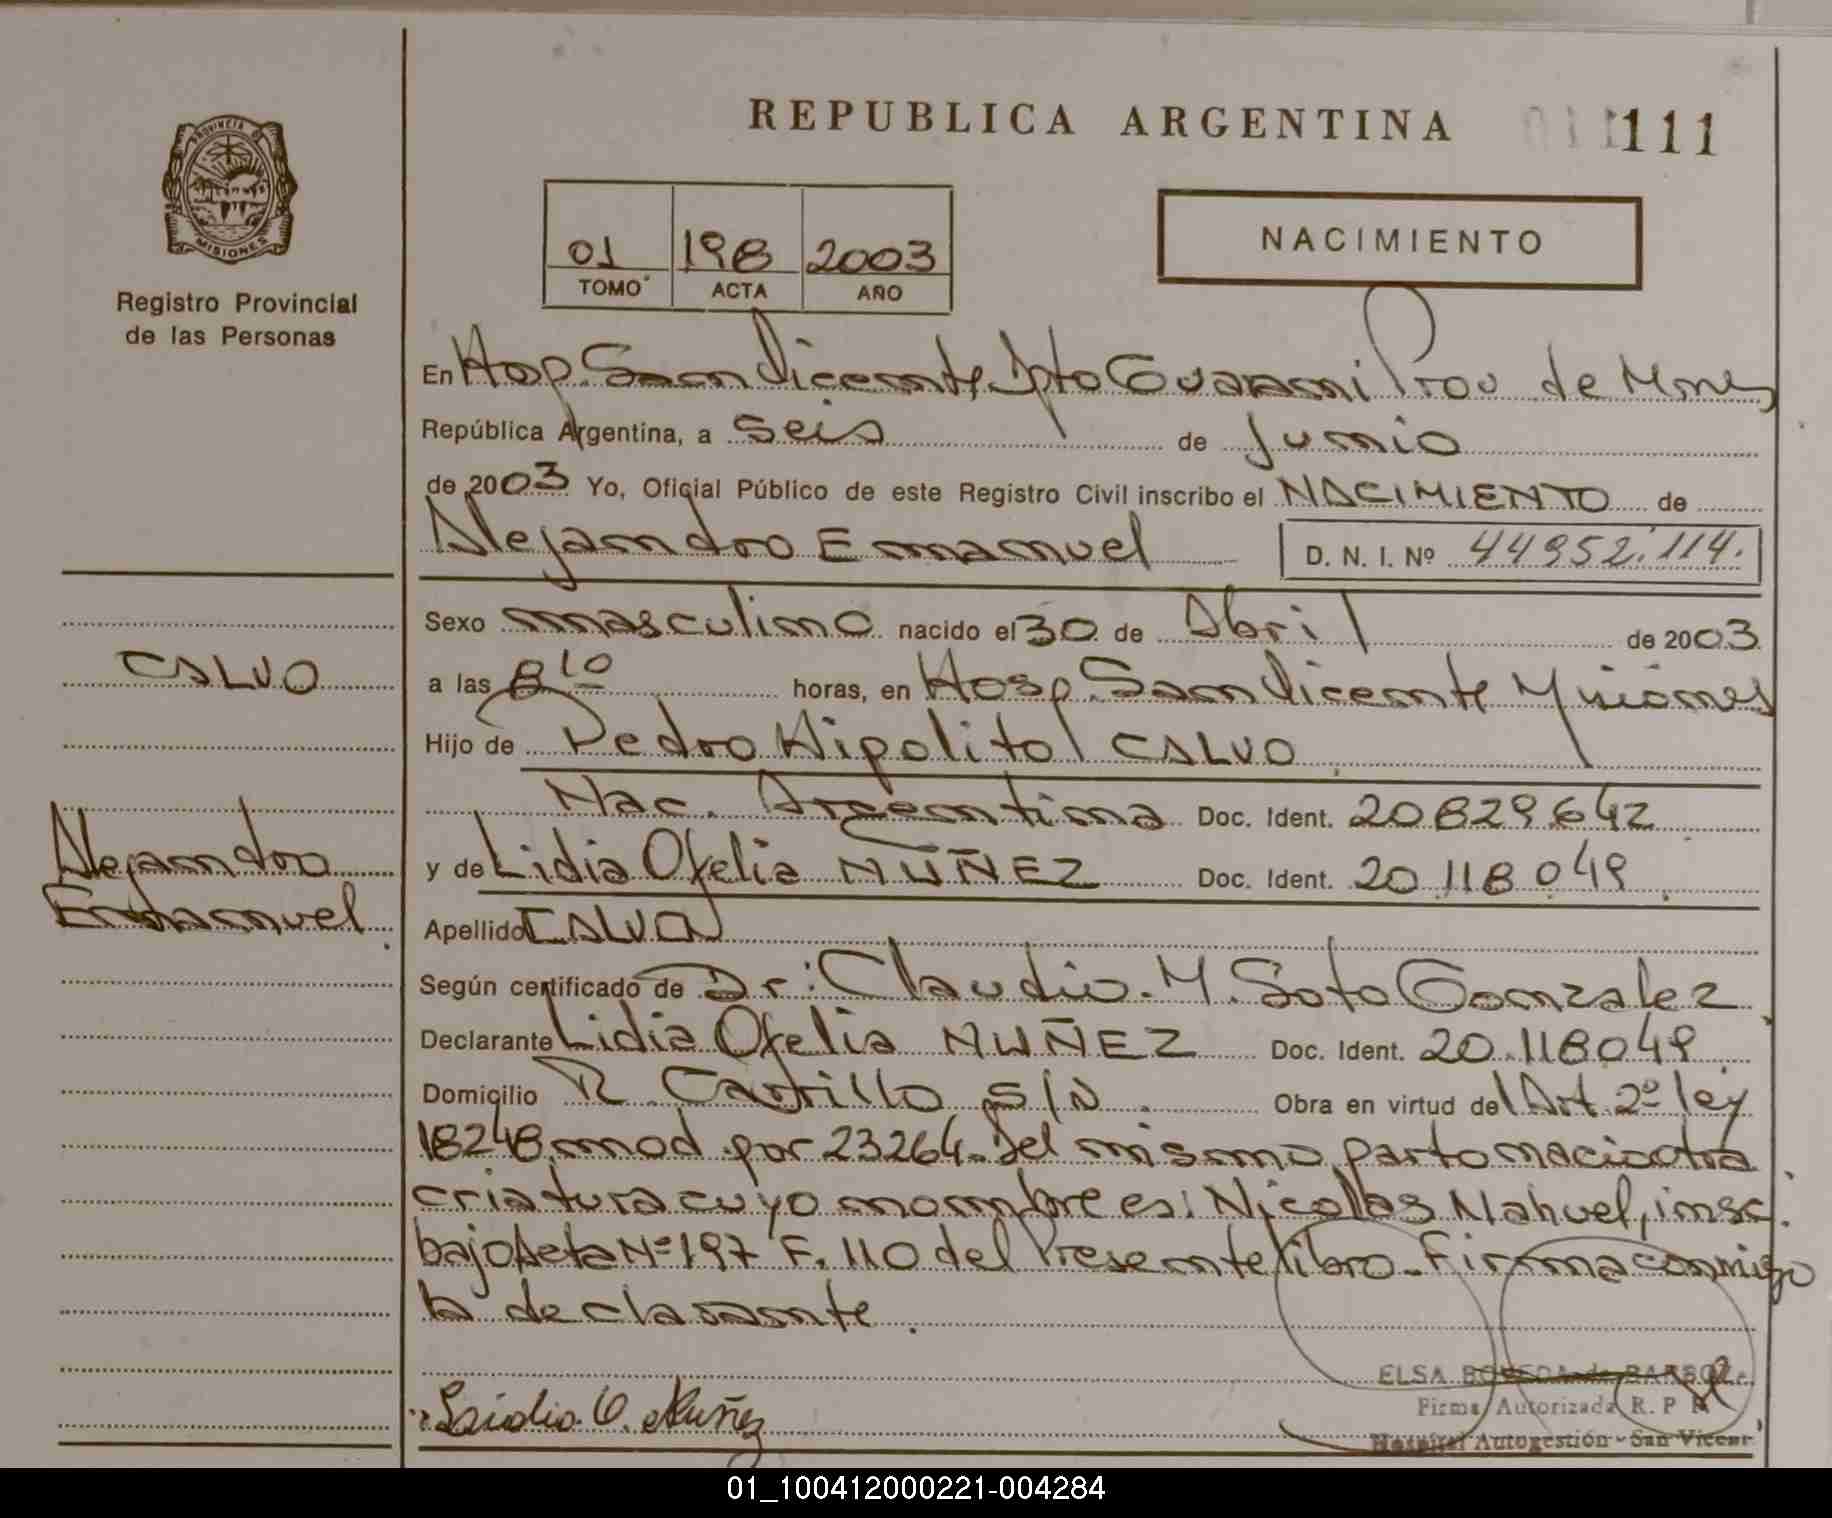 PROVINCIA DE
MISIONES
Registro Provincial
de las Personas
REPUBLICA ARGENTINA
111
01 198 2003
TOMO ACTA AÑO
NACIMIENTO
En Hosp. San Vicente, Dpto Guarani Prov de Mnes
República Argentina, a seis de Junio
de 2003 Yo, Oficial Público de este Registro Civil inscribo el NACIMIENTO de
Alejandro Emanuel D. N. I. Nº 44952.114.
Sexo masculino nacido el 30 de Abril de 2003
a las 8 10 horas, en Hosp. San Vicente Misiones
Hijo de Pedro Hipolito CALVO
Nac. Argentina Doc. Ident. 20829642
y de Lidia Ofelia NUÑEZ Doc. Ident. 20118049
Apellido CALVO
Según certificado de Dr: Claudio. M. Soto Gonzalez
Declarante Lidia Ofelia NUÑEZ Doc. Ident. 20.118049
Domicilio R. Carrillo S/N. Obra en virtud del Art 2º ley
18248 mod por 23264. Del mismo parto nacio otra
criatura cuyo nombre es: Nicolas Nahuel, insc.
bajo Acta Nº 197 F. 110 del Presente libro. Firma conmigo
la declarante.
CALVO
Alejandro
Emanuel
Lidia O. Nuñez
ELSA de BARBOZA
Firma Autorizada R. P
Hospital Autogestión - San Vicent
01_100412000221-004284